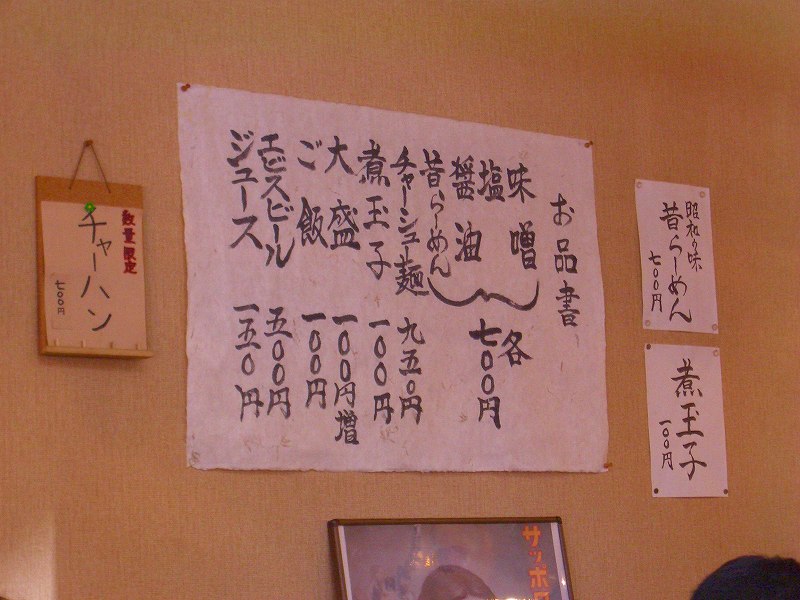 お品書
味噌
塩
醤油
昔らーめん
各
七〇〇円
チャーシュー麺 九五〇円
煮玉子 一〇〇円
大盛 一〇〇円増
ご飯 一〇〇円
エビスビール 五〇〇円
ジュース 一五〇円
昭和の味
昔らーめん
七〇〇円
煮玉子
一〇〇円
数量限定
チャーハン
七〇〇円
サッポロ